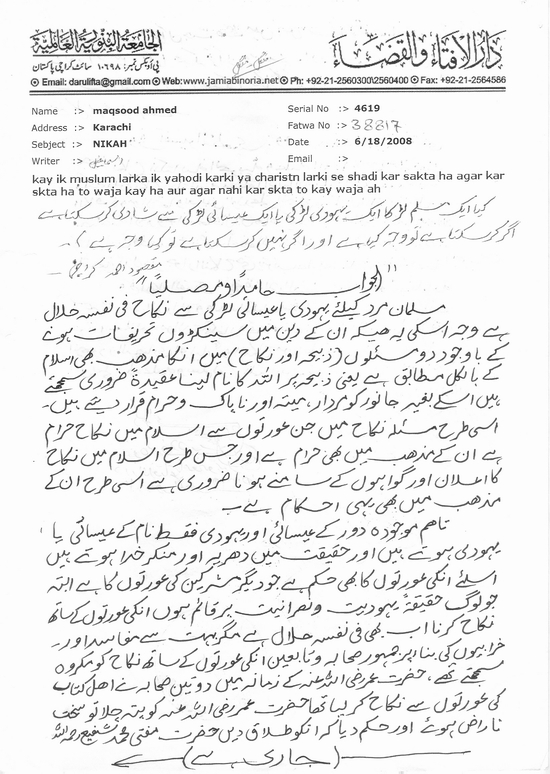 دارالافتاء والقضاء
الجامعة البنورية العالمية
پی او بکس نمبر: ۱۰۶۹۸ سائٹ کراچی پاکستان
Email: darulifta@gmail.com Web:www.jamiabinoria.net Ph: +92-21-2560300\2560400 Fax: +92-21-2564586
Name :> maqsood ahmed Serial No :> 4619
Address :> Karachi Fatwa No :> 38817
Sebject :> NIKAH Date :> 6/18/2008
Writer :> Email :>
kay ik muslum larka ik yahodi karki ya charistn larki se shadi kar sakta ha agar kar
skta ha to waja kay ha aur agar nahi kar skta to kay waja ah
کیا ایک مسلم لڑکا ایک یہودی لڑکی یا ایک عیسائی لڑکی سے شادی کر سکتا ہے
اگر کر سکتا ہے تو وجہ کیا ہے اور اگر نہیں کر سکتا ہے تو کیا وجہ ہے؟ ۔
مقصود احمد کراچی ۔
"الجواب حامداً ومصلیاً"
مسلمان مرد کیلئے یہودی یا عیسائی لڑکی سے نکاح فی نفسہ حلال
ہے وجہ اسکی یہ ھیکہ ان کے دین میں سینکڑوں تحریفات ہونے
کے باوجود دو مسئلوں (ذبیحہ اور نکاح) میں انکا مذھب بھی اسلام
کے بالکل مطابق ہے یعنی ذبیحہ پر اللہ کا نام لینا عقیدۃً ضروری سمجھتے
ہیں اسکے بغیر جانور کو مردار، میتہ اور ناپاک وحرام قرار دیتے ہیں۔
اسی طرح مسئلہ نکاح میں جن عورتوں سے اسلام میں نکاح حرام
ہے ان کے مذھب میں بھی حرام ہے اور جس طرح اسلام میں نکاح
کا اعلان اور گواہوں کے سامنے ہونا ضروری ہے اسی طرح ان کے
مذھب میں بھی یہی احکام ہے۔
تاھم موجودہ دور کے عیسائی اور یہودی فقط نام کے عیسائی یا
یہودی ہوتے ہیں اور حقیقت میں دھریہ اور منکر خدا ہوتے ہیں
اسلئے انکی عورتوں کا بھی حکم ہے جو دیگر مشرکین کی عورتوں کا ہے البتہ
جو لوگ حقیقۃً یہودیت ونصرانیت پر قائم ہوں انکی عورتوں کے ساتھ
نکاح کرنا اب بھی فی نفسہ حلال ہے مگر بہت سے مفاسد اور
خرابیوں کی بناء پر جمہور صحابہ وتابعین انکی عورتوں کے ساتھ نکاح کو مکروہ
سمجھتے تھے، حضرت عمر رضی اللہ عنہ کے زمانہ میں دو تین صحابہ نے اھل کتاب
کی عورتوں سے نکاح کر لیا تھا حضرت عمر رضی اللہ عنہ کو پتہ چلا تو سخت
ناراض ہوئے اور حکم دیا کہ انکو طلاق دیں حضرت مفتی محمد شفیع رحمہ اللہ
(جاری ہے)